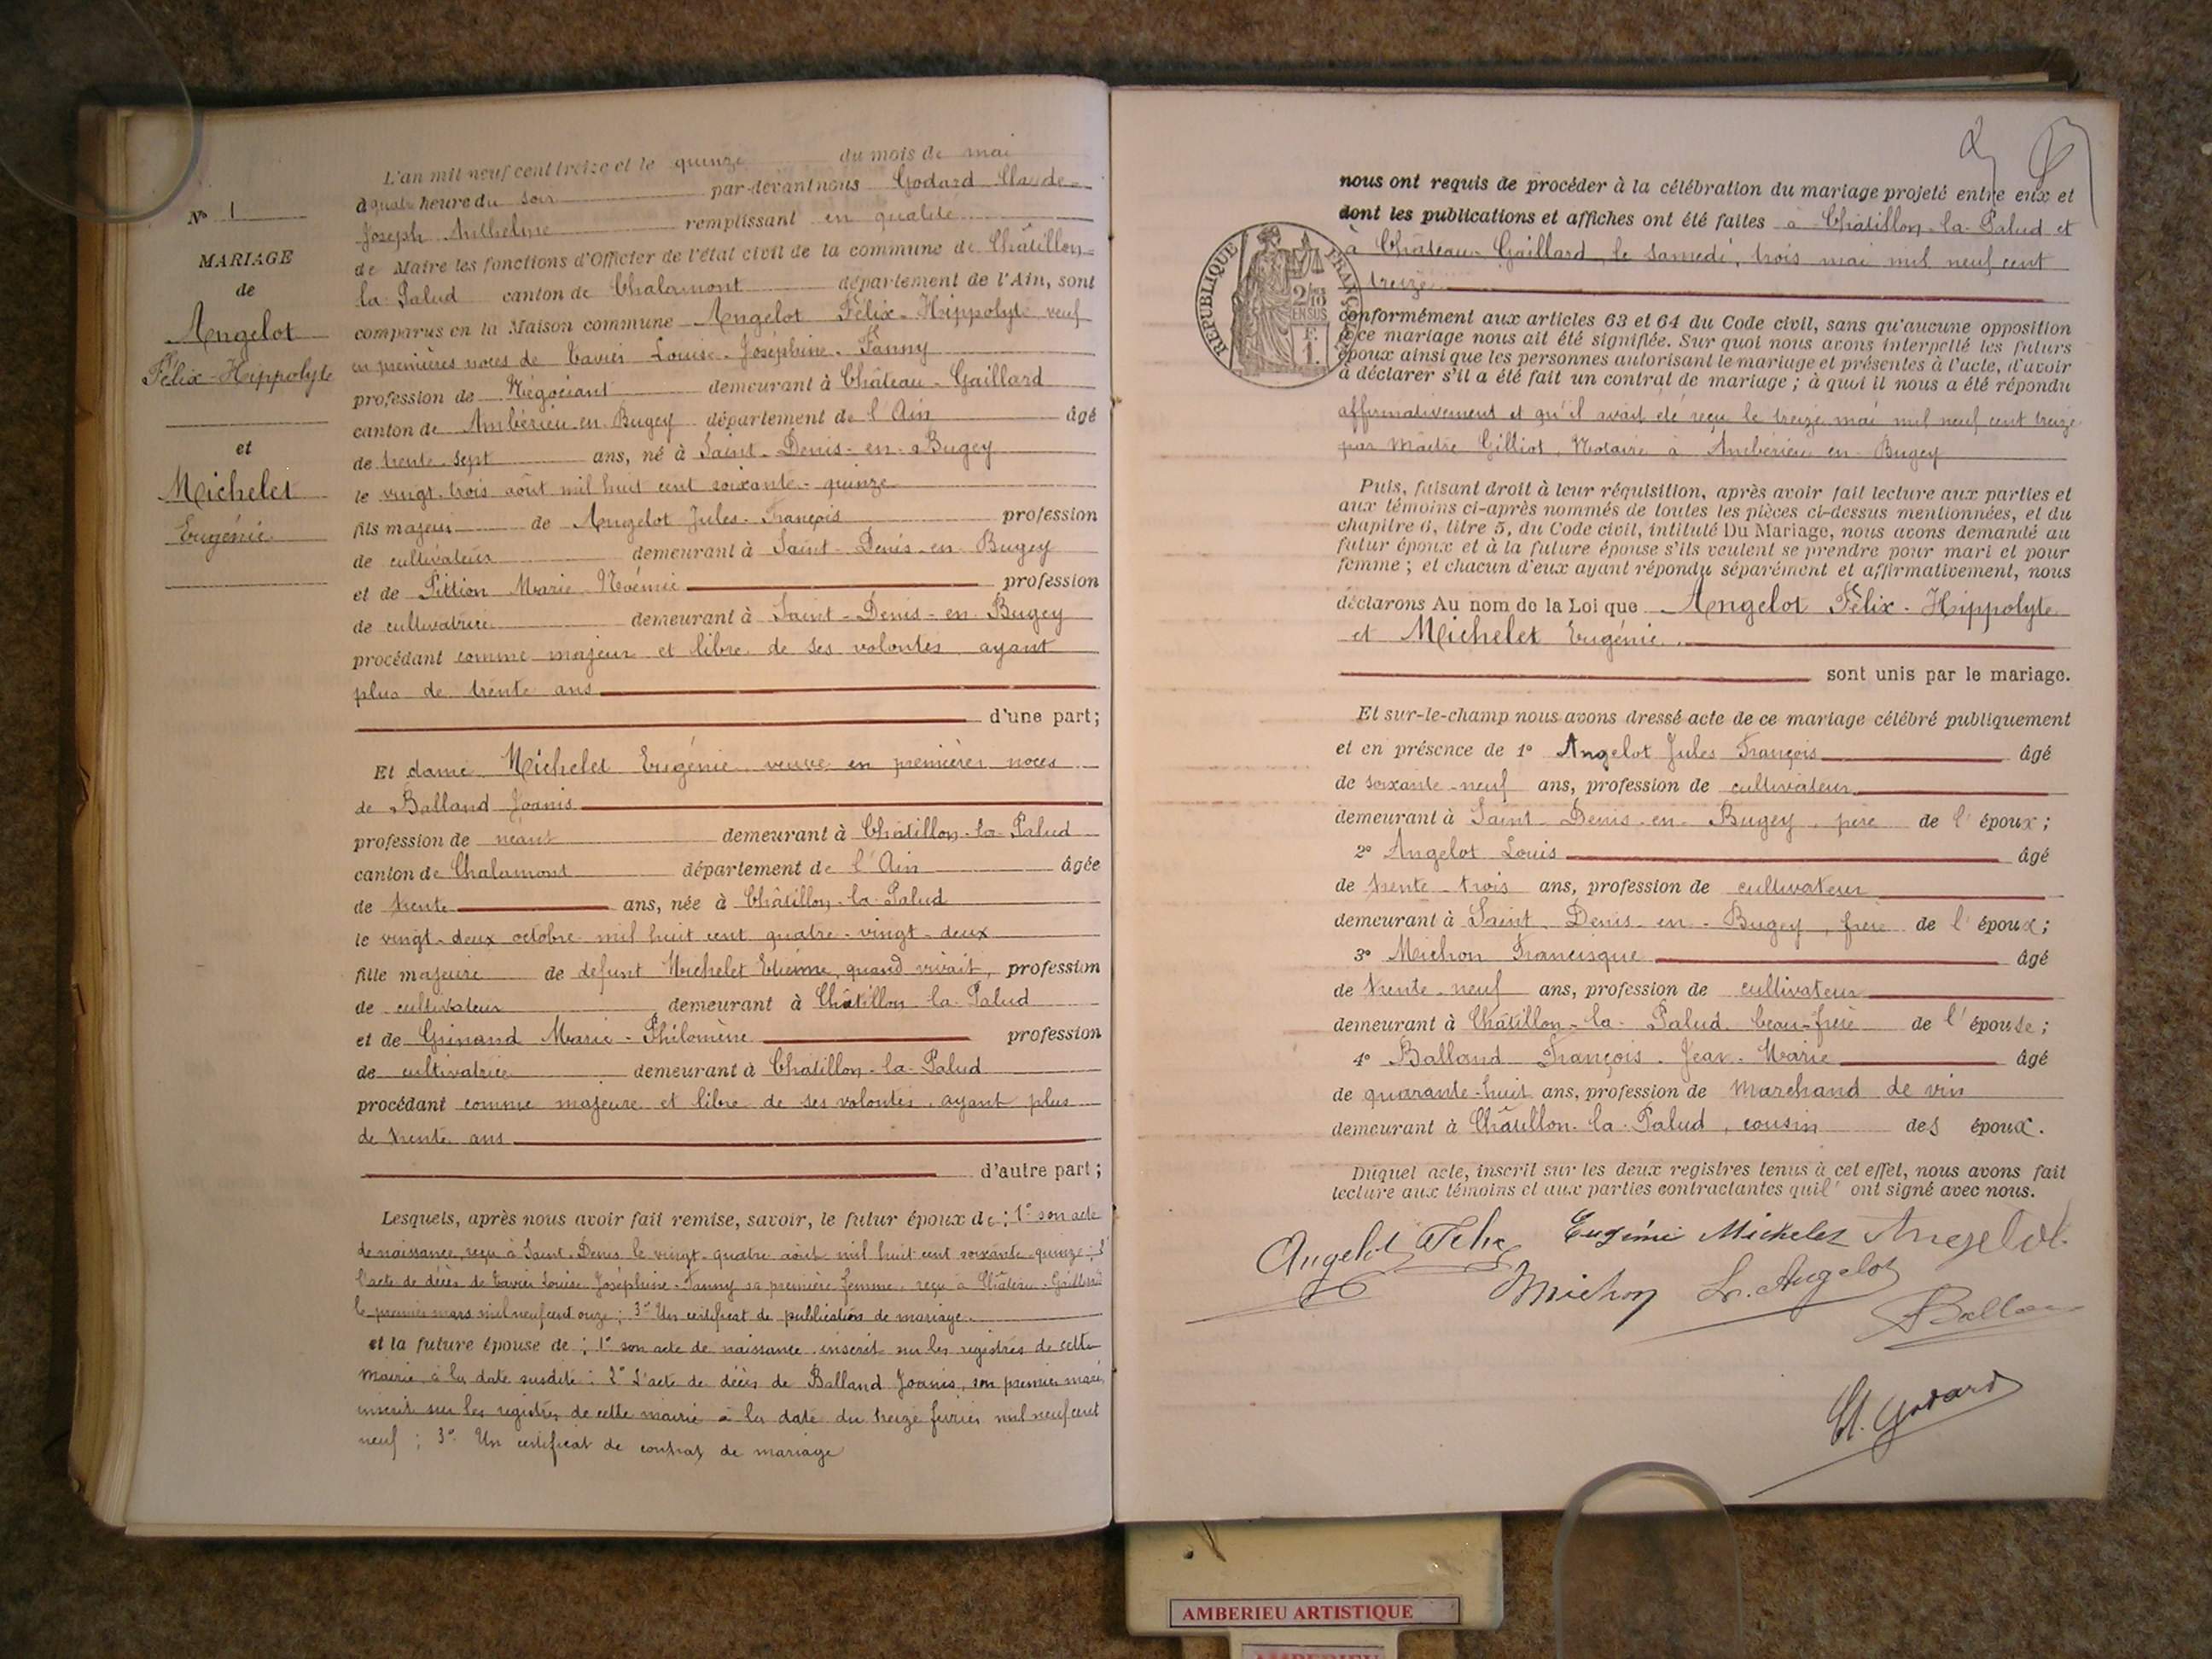 N° 1
MARIAGE
de
Angelot
Félix-Hippolyte
et
Michelet
Eugénie
L'an mil neuf cent treize et le quinze du mois de mai
à quatre heure du soir par-devant nous Godard Claude-
Joseph Anthelme remplissant en qualité
de Maire les fonctions d'Officier de l'état civil de la commune de Châtillon-
la-Palud canton de Chalamont département de l'Ain, sont
comparus en la Maison commune Angelot Félix-Hippolyte veuf
en premières noces de Tavier Louise-Joséphine-Fanny
profession de Négociant demeurant à Château-Gaillard
canton de Ambérieu-en-Bugey département de l'Ain âgé
de trente-sept ans, né à Saint-Denis-en-Bugey
le vingt-trois août mil huit cent soixante-quinze
fils majeur de Angelot Jules-François profession
de cultivateur demeurant à Saint-Denis-en-Bugey
et de Pittion Marie-Noémie profession
de cultivatrice demeurant à Saint-Denis-en-Bugey
procédant comme majeur et libre de ses volontés ayant
plus de trente ans
d'une part;
Et dame Michelet Eugénie veuve en premières noces
de Balland Joanis
profession de néant demeurant à Châtillon-la-Palud
canton de Chalamont département de l'Ain âgée
de trente ans, née à Châtillon-la-Palud
le vingt-deux octobre mil huit cent quatre-vingt-deux
fille majeure de défunt Michelet Etienne, quand vivait, profession
de cultivateur demeurant à Châtillon-la-Palud
et de Grinand Marie-Philomène profession
de cultivatrice demeurant à Châtillon-la-Palud
procédant comme majeure et libre de ses volontés, ayant plus
de trente ans
d'autre part;
Lesquels, après nous avoir fait remise, savoir, le futur époux de : 1° son acte
de naissance, reçu à Saint-Denis le vingt-quatre août mil huit cent soixante-quinze; 2°
l'acte de décès de Tavier Louise-Joséphine-Fanny sa première femme, reçu à Château-Gaillard
le premier mars mil neuf cent onze; 3° Un certificat de publication de mariage.
et la future épouse de : 1° son acte de naissance inscrit sur les registres de cette
mairie à la date susdite; 2° L'acte de décès de Balland Joanis, son premier mari,
inscrit sur les registres de cette mairie à la date du treize février mil neuf cent
neuf; 3° Un certificat de contrat de mariage
nous ont requis de procéder à la célébration du mariage projeté entre eux et
dont les publications et affiches ont été faites à Châtillon-la-Palud et
à Château-Gaillard, le samedi, trois mai mil neuf cent
treize
REPUBLIQUE FRANÇAISE
2/10 EN SUS
F. 1.
conformément aux articles 63 et 64 du Code civil, sans qu'aucune opposition
à ce mariage nous ait été signifiée. Sur quoi nous avons interpellé les futurs
époux ainsi que les personnes autorisant le mariage et présentes à l'acte, d'avoir
à déclarer s'il a été fait un contrat de mariage; à quoi il nous a été répondu
affirmativement et qu'il avait été reçu le treize mai mil neuf cent treize
par Maître Gilliot, Notaire à Ambérieu en Bugey
Puis, faisant droit à leur réquisition, après avoir fait lecture aux parties et
aux témoins ci-après nommés de toutes les pièces ci-dessus mentionnées, et du
chapitre 6, titre 5, du Code civil, intitulé Du Mariage, nous avons demandé au
futur époux et à la future épouse s'ils veulent se prendre pour mari et pour
femme; et chacun d'eux ayant répondu séparément et affirmativement, nous
déclarons Au nom de la Loi que Angelot Félix-Hippolyte
et Michelet Eugénie.
sont unis par le mariage.
Et sur-le-champ nous avons dressé acte de ce mariage célébré publiquement
et en présence de 1° Angelot Jules François âgé
de soixante-neuf ans, profession de cultivateur
demeurant à Saint-Denis-en-Bugey, père de l'époux;
2° Angelot Louis âgé
de trente-trois ans, profession de cultivateur
demeurant à Saint-Denis-en-Bugey, frère de l'époux;
3° Michon Francisque âgé
de trente-neuf ans, profession de cultivateur
demeurant à Châtillon-la-Palud beau-frère de l'épouse;
4° Balland François-Jean-Marie âgé
de quarante-huit ans, profession de Marchand de vin
demeurant à Châtillon-la-Palud, cousin des époux.
Duquel acte, inscrit sur les deux registres tenus à cet effet, nous avons fait
lecture aux témoins et aux parties contractantes qui l'ont signé avec nous.
Angelot Felix Eugénie Michelet Angelot
Michon L. Angelot
Balland
Cl. Godard
AMBERIEU ARTISTIQUE
AMBERIEU